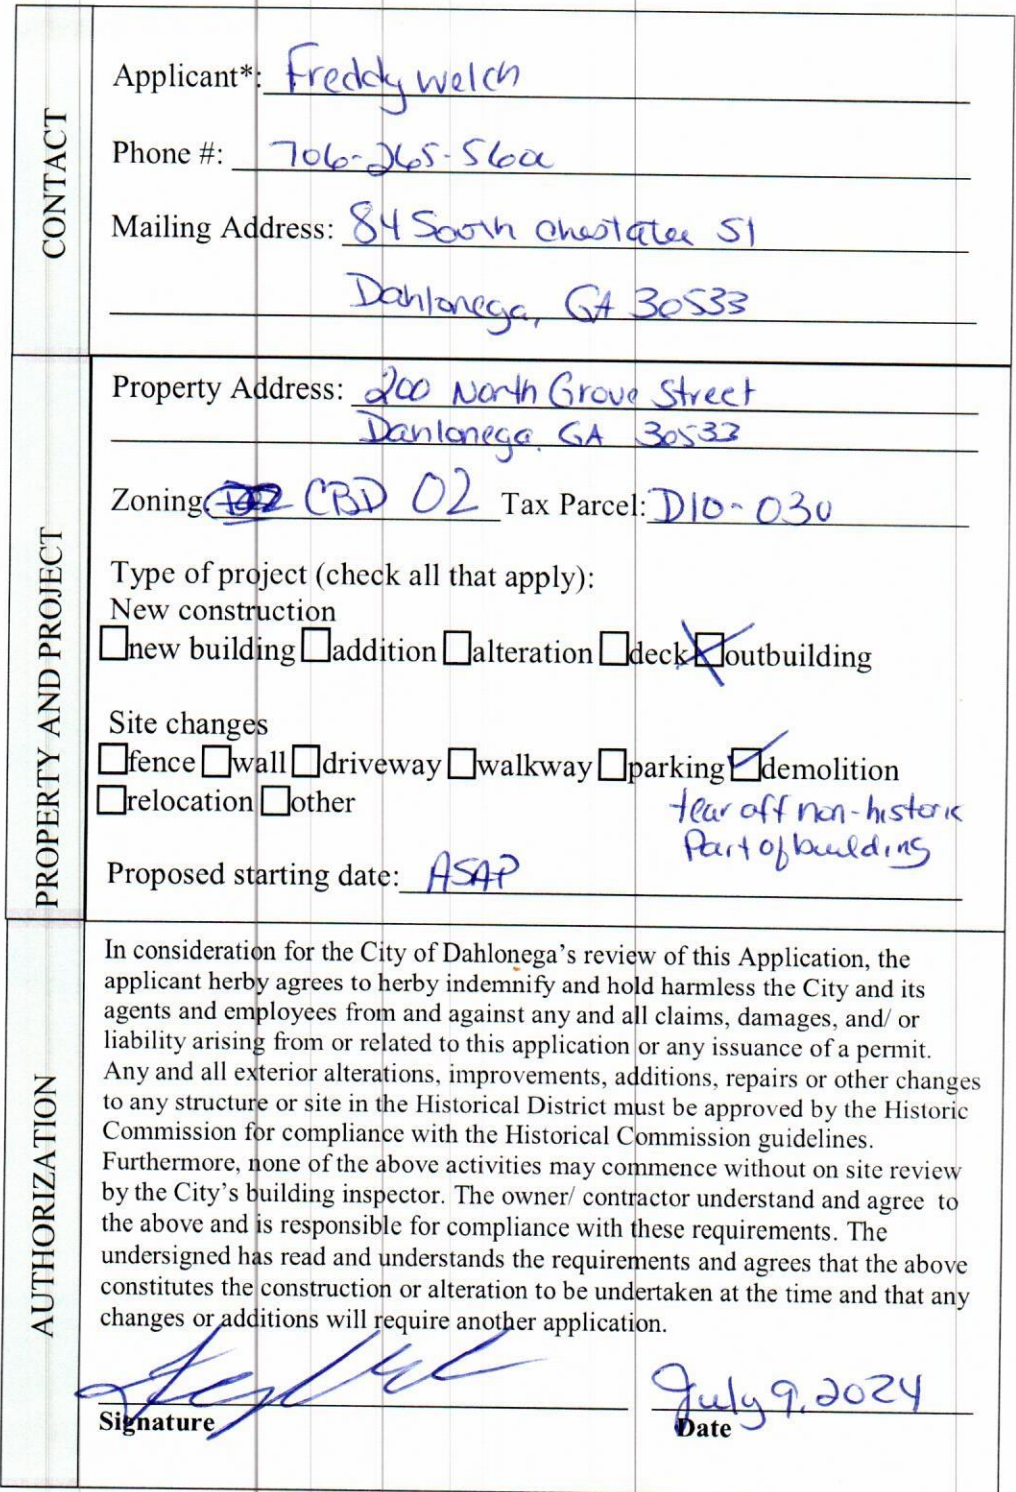 CONTACT
Applicant*: Freddy Welch
Phone #: 706-265-
Mailing Address: 84 South Chestatee St
Dahlonega, GA 30533
PROPERTY AND PROJECT
Property Address: 200 North Grove Street
Dahlonega GA 30533
Zoning: CBD 02 Tax Parcel: D10-030
Type of project (check all that apply):
New construction
☐new building ☐addition ☐alteration ☐deck ☒outbuilding
Site changes
☐fence ☐wall ☐driveway ☐walkway ☐parking ☑demolition
☐relocation ☐other
tear off non-historic
Part of building
Proposed starting date: ASAP
AUTHORIZATION
In consideration for the City of Dahlonega's review of this Application, the
applicant herby agrees to herby indemnify and hold harmless the City and its
agents and employees from and against any and all claims, damages, and/ or
liability arising from or related to this application or any issuance of a permit.
Any and all exterior alterations, improvements, additions, repairs or other changes
to any structure or site in the Historical District must be approved by the Historic
Commission for compliance with the Historical Commission guidelines.
Furthermore, none of the above activities may commence without on site review
by the City's building inspector. The owner/ contractor understand and agree to
the above and is responsible for compliance with these requirements. The
undersigned has read and understands the requirements and agrees that the above
constitutes the construction or alteration to be undertaken at the time and that any
changes or additions will require another application.
July 9, 2024
Signature Date